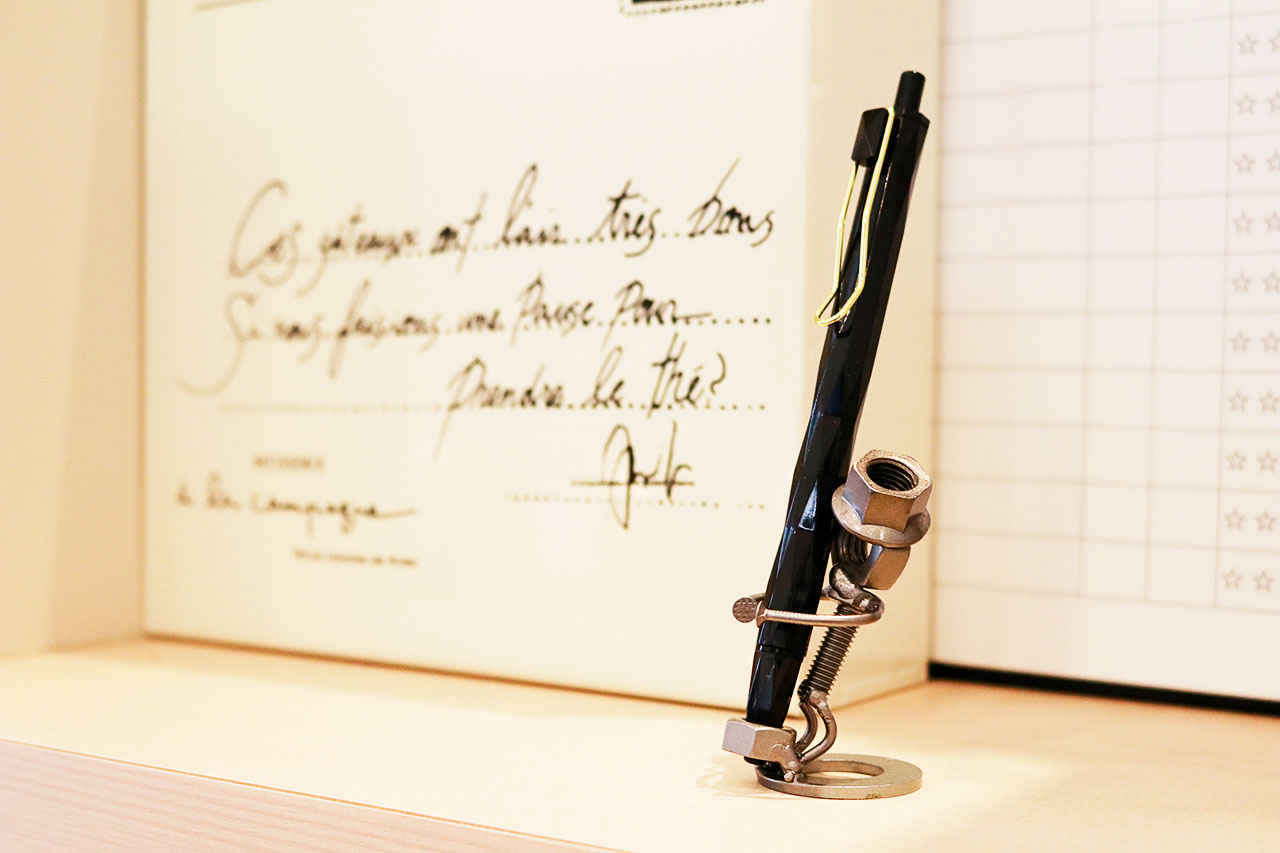 Ces gâteaux ont l'air très bons
Si nous faisions une Pause Pour
Prendre le thé?
PATISSERIE
à la campagne